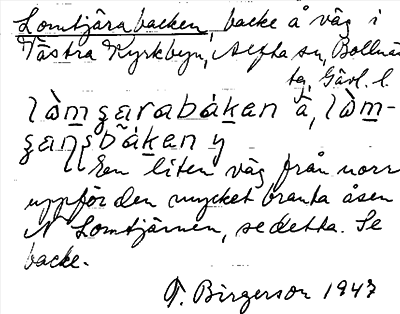 Lomtjärabacken, backe å väg i
Västra Kyrkbyn, Alfta sn, Bollnäs
tg, Gävl. l.
lòm̲ʂarabák̲en å, lòm̲-
ʂaɳsbák̲en y
En liten väg från norr
uppför den mycket branta åsen
N Lomtjärnen, se detta. Se
backe.
T. Birgerson 1947